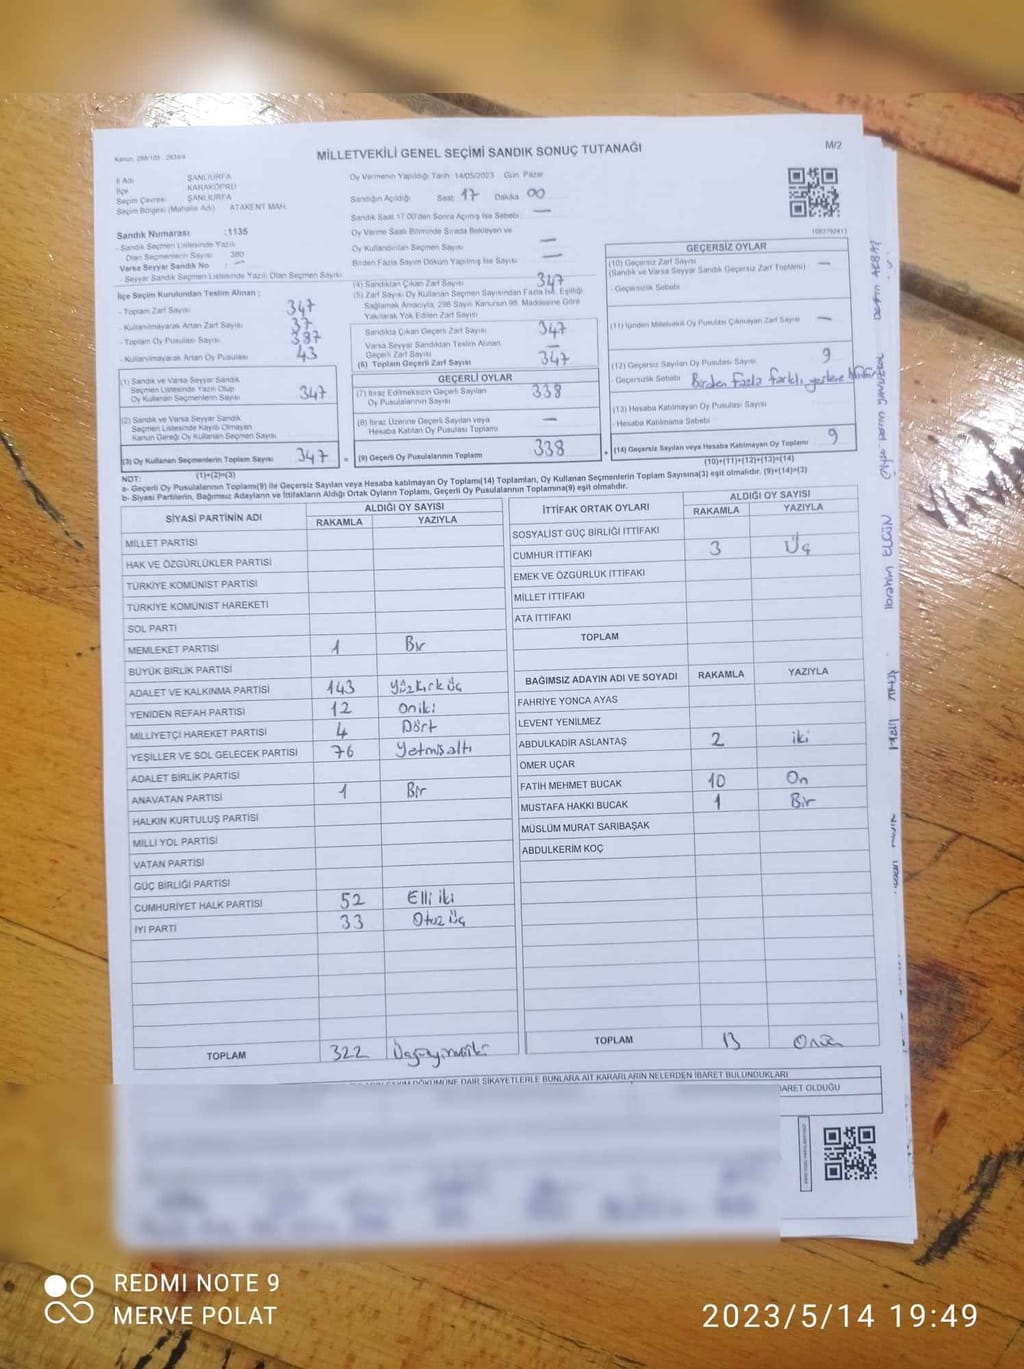 Kanun: 298/105 - 2839/4
MİLLETVEKİLİ GENEL SEÇİMİ SANDIK SONUÇ TUTANAĞI
M/2
İl Adı ŞANLIURFA
İlçe KARAKÖPRÜ
Seçim Çevresi ŞANLIURFA
Seçim Bölgesi (Mahalle Adı) ATAKENT MAH.
Sandık Numarası :1135
- Sandık Seçmen Listesinde Yazılı
Olan Seçmenlerin Sayısı 380
Varsa Seyyar Sandık No : —
- Seyyar Sandık Seçmen Listesinde Yazılı Olan Seçmen Sayısı
Oy Vermenin Yapıldığı Tarih 14/05/2023 Gün Pazar
Sandığın Açıldığı Saat 17 Dakika 00
Sandık Saat 17.00'den Sonra Açılmış İse Sebebi —
Oy Verme Saati Bitiminde Sırada Bekleyen ve
Oy Kullandırılan Seçmen Sayısı —
Birden Fazla Sayım Döküm Yapılmış İse Sebebi —
İlçe Seçim Kurulundan Teslim Alınan ;
- Toplam Zarf Sayısı 347
- Kullanılmayarak Artan Zarf Sayısı 37
- Toplam Oy Pusulası Sayısı 387
- Kullanılmayarak Artan Oy Pusulası 43
(1) Sandık ve Varsa Seyyar Sandık
Seçmen Listesinde Yazılı Olup
Oy Kullanan Seçmenlerin Sayısı 347
(2) Sandık ve Varsa Seyyar Sandık
Seçmen Listesinde Kayıtlı Olmayan
Kanun Gereği Oy Kullanan Seçmen Sayısı
(3) Oy Kullanan Seçmenlerin Toplam Sayısı 347 =
(1)+(2)=(3)
(4) Sandıktan Çıkan Zarf Sayısı 347
(5) Zarf Sayısı Oy Kullanan Seçmen Sayısından Fazla İse, Eşitliği
Sağlamak Amacıyla, 298 Sayılı Kanunun 98. Maddesine Göre
Yakılarak Yok Edilen Zarf Sayısı
Sandıkta Çıkan Geçerli Zarf Sayısı 347
Varsa Seyyar Sandıktan Teslim Alınan
Geçerli Zarf Sayısı —
(6) Toplam Geçerli Zarf Sayısı 347
GEÇERLİ OYLAR
(7) İtiraz Edilmeksizin Geçerli Sayılan
Oy Pusulalarının Sayısı 338
(8) İtiraz Üzerine Geçerli Sayılan veya
Hesaba Katılan Oy Pusulası Toplamı —
(9) Geçerli Oy Pusulalarının Toplamı 338 +
GEÇERSİZ OYLAR
(10) Geçersiz Zarf Sayısı —
(Sandık ve Varsa Seyyar Sandık Geçersiz Zarf Toplamı)
- Geçersizlik Sebebi
(11) İçinden Milletvekili Oy Pusulası Çıkmayan Zarf Sayısı —
(12) Geçersiz Sayılan Oy Pusulası Sayısı 9
- Geçersizlik Sebebi Birden fazla farklı yerlere
(13) Hesaba Katılmayan Oy Pusulası Sayısı
- Hesaba Katılmama Sebebi
(14) Geçersiz Sayılan veya Hesaba Katılmayan Oy Toplamı 9
(10)+(11)+(12)+(13)=(14)
NOT:
a- Geçerli Oy Pusulalarının Toplamı(9) ile Geçersiz Sayılan veya Hesaba katılmayan Oy Toplamı(14) Toplamları, Oy Kullanan Seçmenlerin Toplam Sayısına(3) eşit olmalıdır. (9)+(14)=(3)
b- Siyasi Partilerin, Bağımsız Adayların ve İttifakların Aldığı Ortak Oyların Toplamı, Geçerli Oy Pusulalarının Toplamına(9) eşit olmalıdır.
SİYASİ PARTİNİN ADI ALDIĞI OY SAYISI
RAKAMLA YAZIYLA
MİLLET PARTİSİ
HAK VE ÖZGÜRLÜKLER PARTİSİ
TÜRKİYE KOMÜNİST PARTİSİ
TÜRKİYE KOMÜNİST HAREKETİ
SOL PARTİ
MEMLEKET PARTİSİ 1 Bir
BÜYÜK BİRLİK PARTİSİ
ADALET VE KALKINMA PARTİSİ 143 Yüzkırküç
YENİDEN REFAH PARTİSİ 12 oniki
MİLLİYETÇİ HAREKET PARTİSİ 4 Dört
YEŞİLLER VE SOL GELECEK PARTİSİ 76 Yetmişaltı
ADALET BİRLİK PARTİSİ
ANAVATAN PARTİSİ 1 Bir
HALKIN KURTULUŞ PARTİSİ
MİLLİ YOL PARTİSİ
VATAN PARTİSİ
GÜÇ BİRLİĞİ PARTİSİ
CUMHURİYET HALK PARTİSİ 52 Elli iki
İYİ PARTİ 33 Otuz üç
TOPLAM 322 Üçyüzyirmiiki
İTTİFAK ORTAK OYLARI ALDIĞI OY SAYISI
RAKAMLA YAZIYLA
SOSYALİST GÜÇ BİRLİĞİ İTTİFAKI
CUMHUR İTTİFAKI 3 Üç
EMEK VE ÖZGÜRLÜK İTTİFAKI
MİLLET İTTİFAKI
ATA İTTİFAKI
TOPLAM
BAĞIMSIZ ADAYIN ADI VE SOYADI RAKAMLA YAZIYLA
FAHRİYE YONCA AYAS
LEVENT YENİLMEZ
ABDULKADİR ASLANTAŞ 2 iki
ÖMER UÇAR
FATİH MEHMET BUCAK 10 On
MUSTAFA HAKKI BUCAK 1 Bir
MÜSLÜM MURAT SARIBAŞAK
ABDULKERİM KOÇ
TOPLAM 13 Onüç
DÖKÜMÜNE DAİR ŞİKAYETLERLE BUNLARA AİT KARARLARIN NELERDEN İBARET BULUNDUKLARI
BARET OLDUĞU
İbrahim ELGÜN
REDMI NOTE 9
MERVE POLAT
2023/5/14 19:49